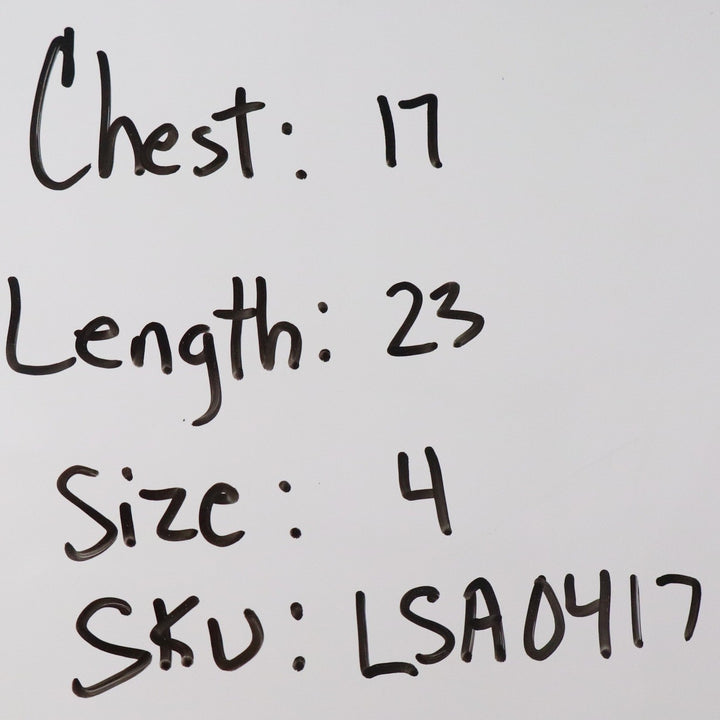 Chest: 17
Length: 23
Size: 4
SKU: LSA0417